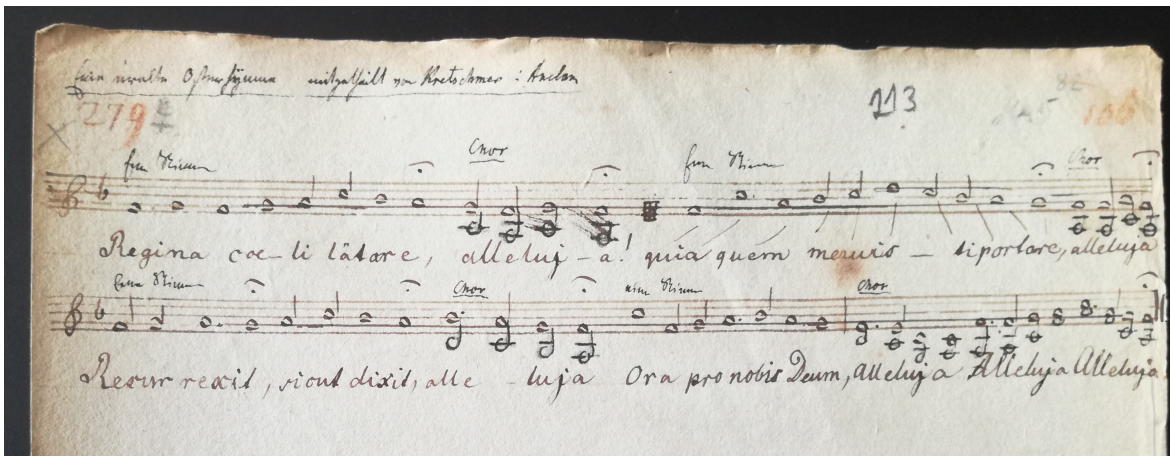 Eine uralte Osterhÿmne mitgetheilt von Kretschmer i. Anclam
279 113
Eine Stimme Chor Eine Stimme Chor
Regina coe-li lätare, alleluj-a! quia quem meruis-ti portare, alleluja
Eine Stimme Chor eine Stimme Chor
Resurrexit, sicut dixit, alle-luja Ora pro nobis Deum, Alleluja Alleluja Alleluja